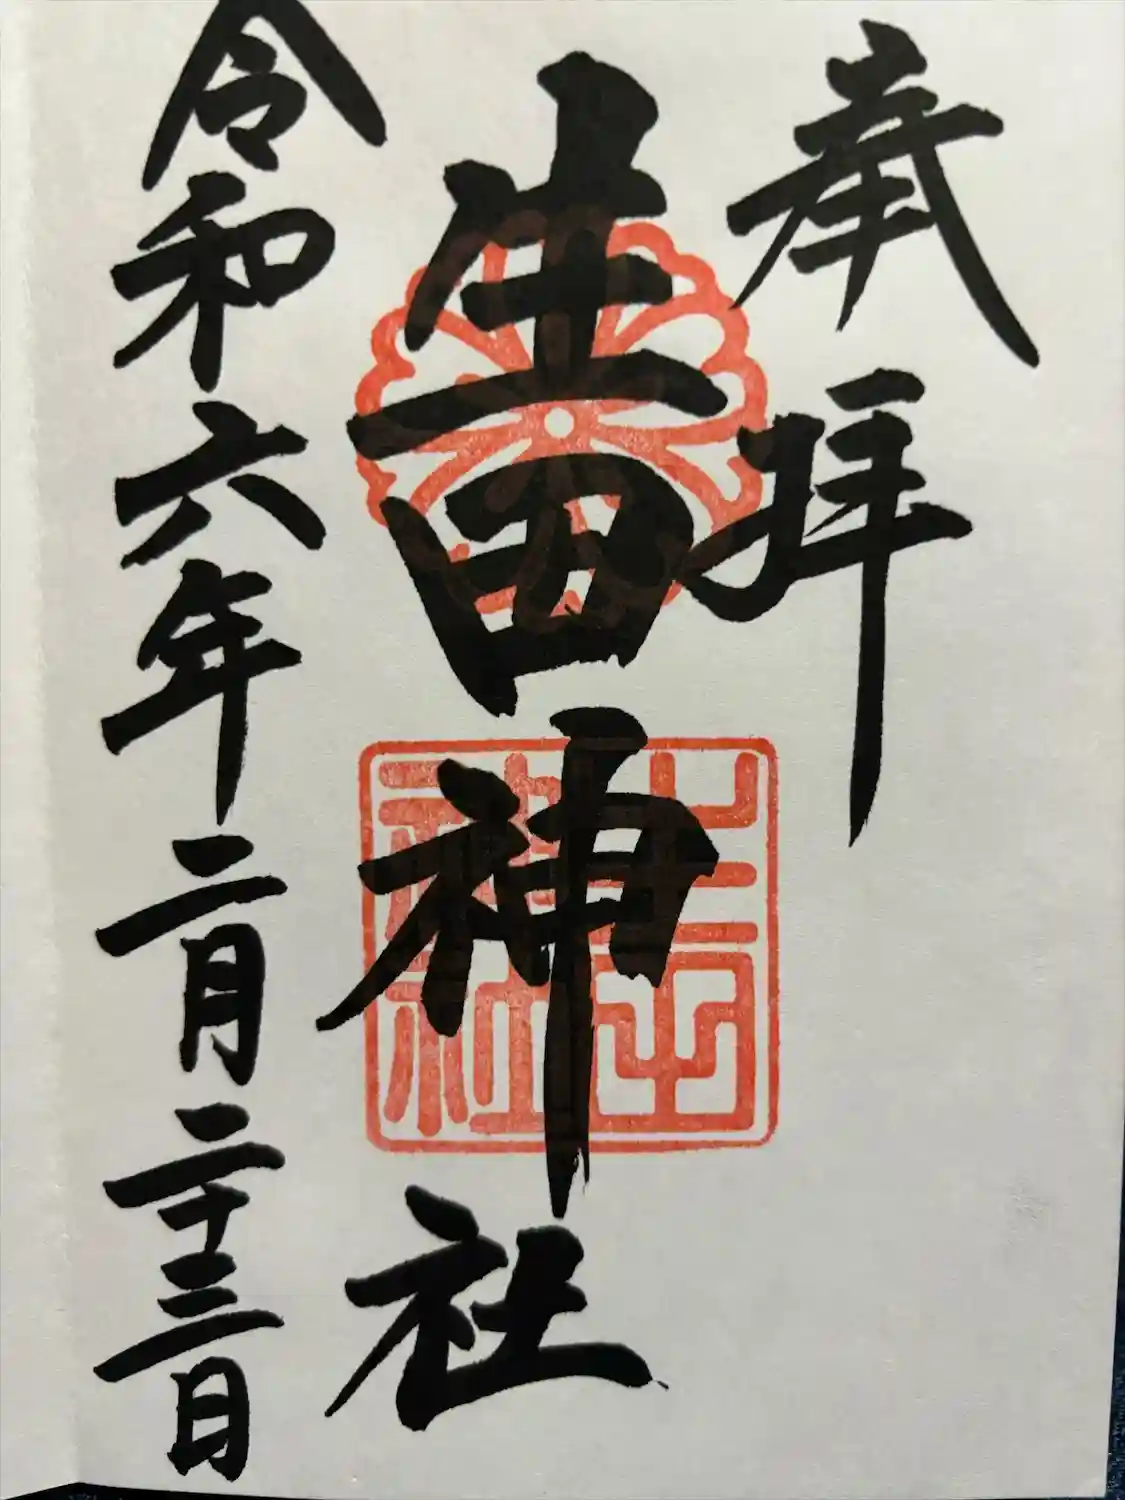 奉拝
生田神社
生田神社
令和六年二月二十三日